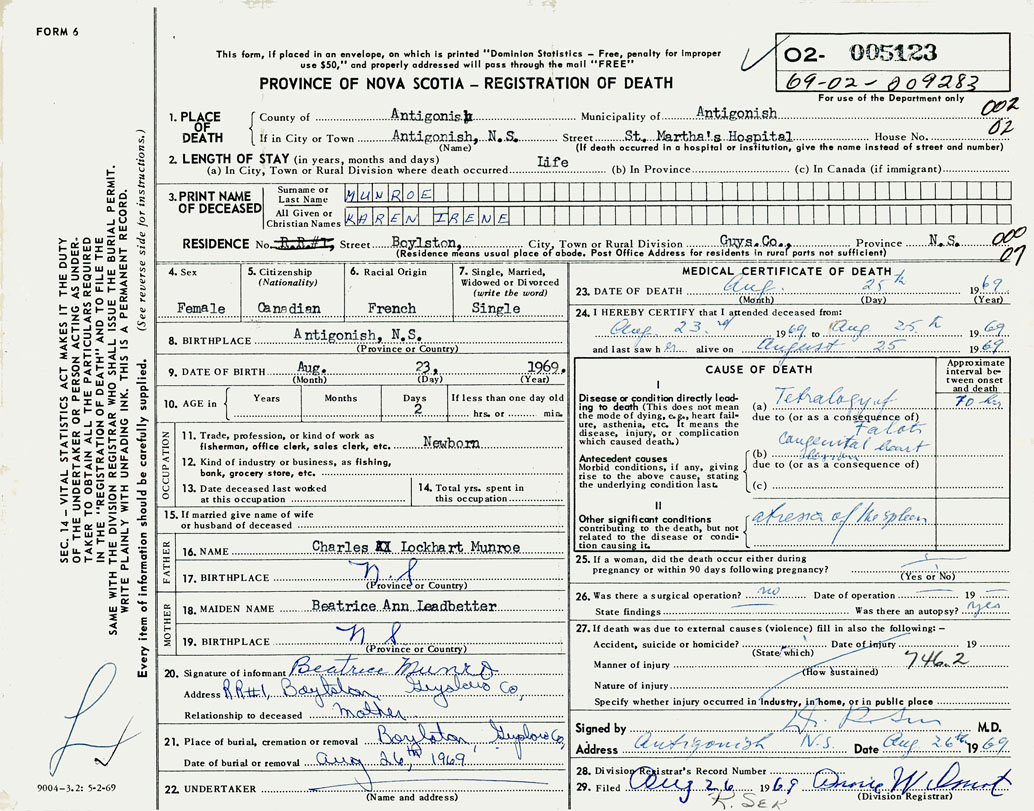 FORM 6
This form, if placed in an envelope, on which is printed "Dominion Statistics – Free, penalty for improper
use $50," and properly addressed will pass through the mail "FREE"
PROVINCE OF NOVA SCOTIA – REGISTRATION OF DEATH
02- 005123
69-02-009283
For use of the Department only
002
02
1. PLACE OF DEATH
County of Antigonish Municipality of Antigonish
If in City or Town Antigonish, N.S. Street St. Martha's Hospital House No.
(Name) (If death occurred in a hospital or institution, give the name instead of street and number)
2. LENGTH OF STAY (in years, months and days)
(a) In City, Town or Rural Division where death occurred Life (b) In Province (c) In Canada (if immigrant)
3. PRINT NAME OF DECEASED
Surname or Last Name MUNROE
All Given or Christian Names KAREN IRENE
RESIDENCE No. R.R.#1, Street Boylston, City, Town or Rural Division Guys.Co., Province N.S.
(Residence means usual place of abode. Post Office Address for residents in rural parts not sufficient)
000
07
4. Sex
Female
5. Citizenship
(Nationality)
Canadian
6. Racial Origin
French
7. Single, Married,
Widowed or Divorced
(write the word)
Single
8. BIRTHPLACE Antigonish, N.S.
(Province or Country)
9. DATE OF BIRTH Aug. 23, 1969.
(Month) (Day) (Year)
10. AGE in
Years Months Days If less than one day old
2 hrs. or min.
OCCUPATION
11. Trade, profession, or kind of work as
fishermon, office clerk, sales clerk, etc. Newborn
12. Kind of industry or business, as fishing,
bank, grocery store, etc.
13. Date deceased last worked
at this occupation
14. Total yrs. spent in
this occupation
15. If married give name of wife
or husband of deceased
FATHER
16. NAME Charles Lockhart Munroe
17. BIRTHPLACE N.S
(Province or Country)
MOTHER
18. MAIDEN NAME Beatrice Ann Leadbetter
19. BIRTHPLACE N S
(Province or Country)
20. Signature of informant Beatrice Munro
Address RR#1, Boylston Guysboro Co,
Relationship to deceased Mother
21. Place of burial, cremation or removal Boylston, Guysboro Co,
Date of burial or removal Aug 26, th 1969
22. UNDERTAKER
(Name and address)
MEDICAL CERTIFICATE OF DEATH
23. DATE OF DEATH Aug. 25th 1969
(Month) (Day) (Year)
24. I HEREBY CERTIFY that I attended deceased from:
Aug. 23.rd 1969 to Aug 25.th 1969
and last saw her alive on August 25 1969
CAUSE OF DEATH
Approximate
interval be-
tween onset
and death
I
Disease or condition directly lead-
ing to death (This does not
mean the mode of dying, e.g., heart fail-
ure, asthenia, etc. It means the
disease, injury, or complication
which caused death.)
(a) Tetralogy of 70 hrs
due to (or as a consequence of)
Falots
Antecedent causes
Morbid conditions, if any, giving
rise to the above cause, stating
the underlying condition last.
(b) Congenital heart
due to (or as a consequence of)
(c)
II
Other significant conditions
contributing to the death, but not
related to the disease or condi-
tion causing it.
atresia of the spleen
25. If a woman, did the death occur either during
pregnancy or within 90 days following pregnancy?
(Yes or No)
26. Was there a surgical operation? no Date of operation 19
State findings Was there an autopsy? yes
27. If death was due to external causes (violence) fill in also the following: –
Accident, suicide or homicide? Date of injury 19
(State which)
Manner of injury 746.2
(How sustained)
Nature of injury
Specify whether injury occurred in industry, in home, or in public place
Signed by M.D.
Address Antigonish N.S. Date Aug 26th 1969
28. Division Registrar's Record Number
29. Filed Aug 26 1969
(Division Registrar)
SEC. 14 – VITAL STATISTICS ACT MAKES IT THE DUTY
OF THE UNDERTAKER OR PERSON ACTING AS UNDER-
TAKER TO OBTAIN ALL THE PARTICULARS REQUIRED
IN THE "REGISTRATION OF DEATH" AND TO FILE THE
SAME WITH THE DIVISION REGISTRAR WHO SHALL ISSUE THE BURIAL PERMIT.
WRITE PLAINLY WITH UNFADING INK. THIS IS A PERMANENT RECORD.
Every item of information should be carefully supplied. (See reverse side for instructions.)
9004-3.2: 5-2-69